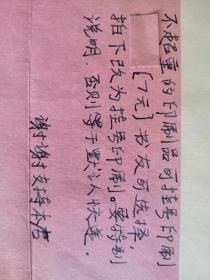 不超重的印刷品可挂号印刷
(7元) 书友可选择
拍下改为挂号印刷。要特别
说明，否则等于默认快递。
谢谢支持本店